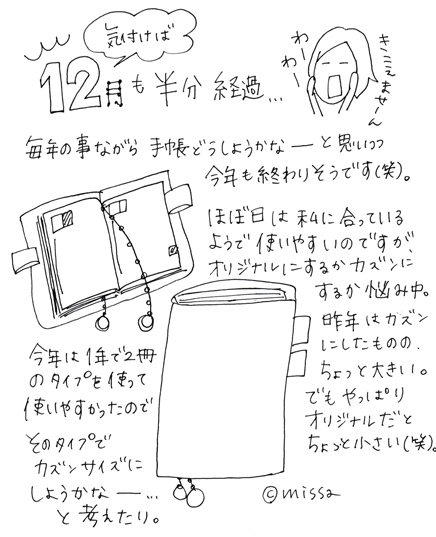 気付けば
12月も半分経過...
わー
わー
きこえませーん
毎年の事ながら手帳どうしようかなーと思いつつ
今年も終わりそうです(笑)。
ほぼ日は私に合っている
ようで使いやすいのですが、
オリジナルにするかカズンに
するか悩み中。
昨年はカズン
にしたものの、
ちょっと大きい。
でもやっぱり
オリジナルだと
ちょっと小さい(笑)。
今年は1年で2冊
のタイプを使って
使いやすかったので
そのタイプで
カズンサイズに
しようかなー...
と考えたり。
©missa